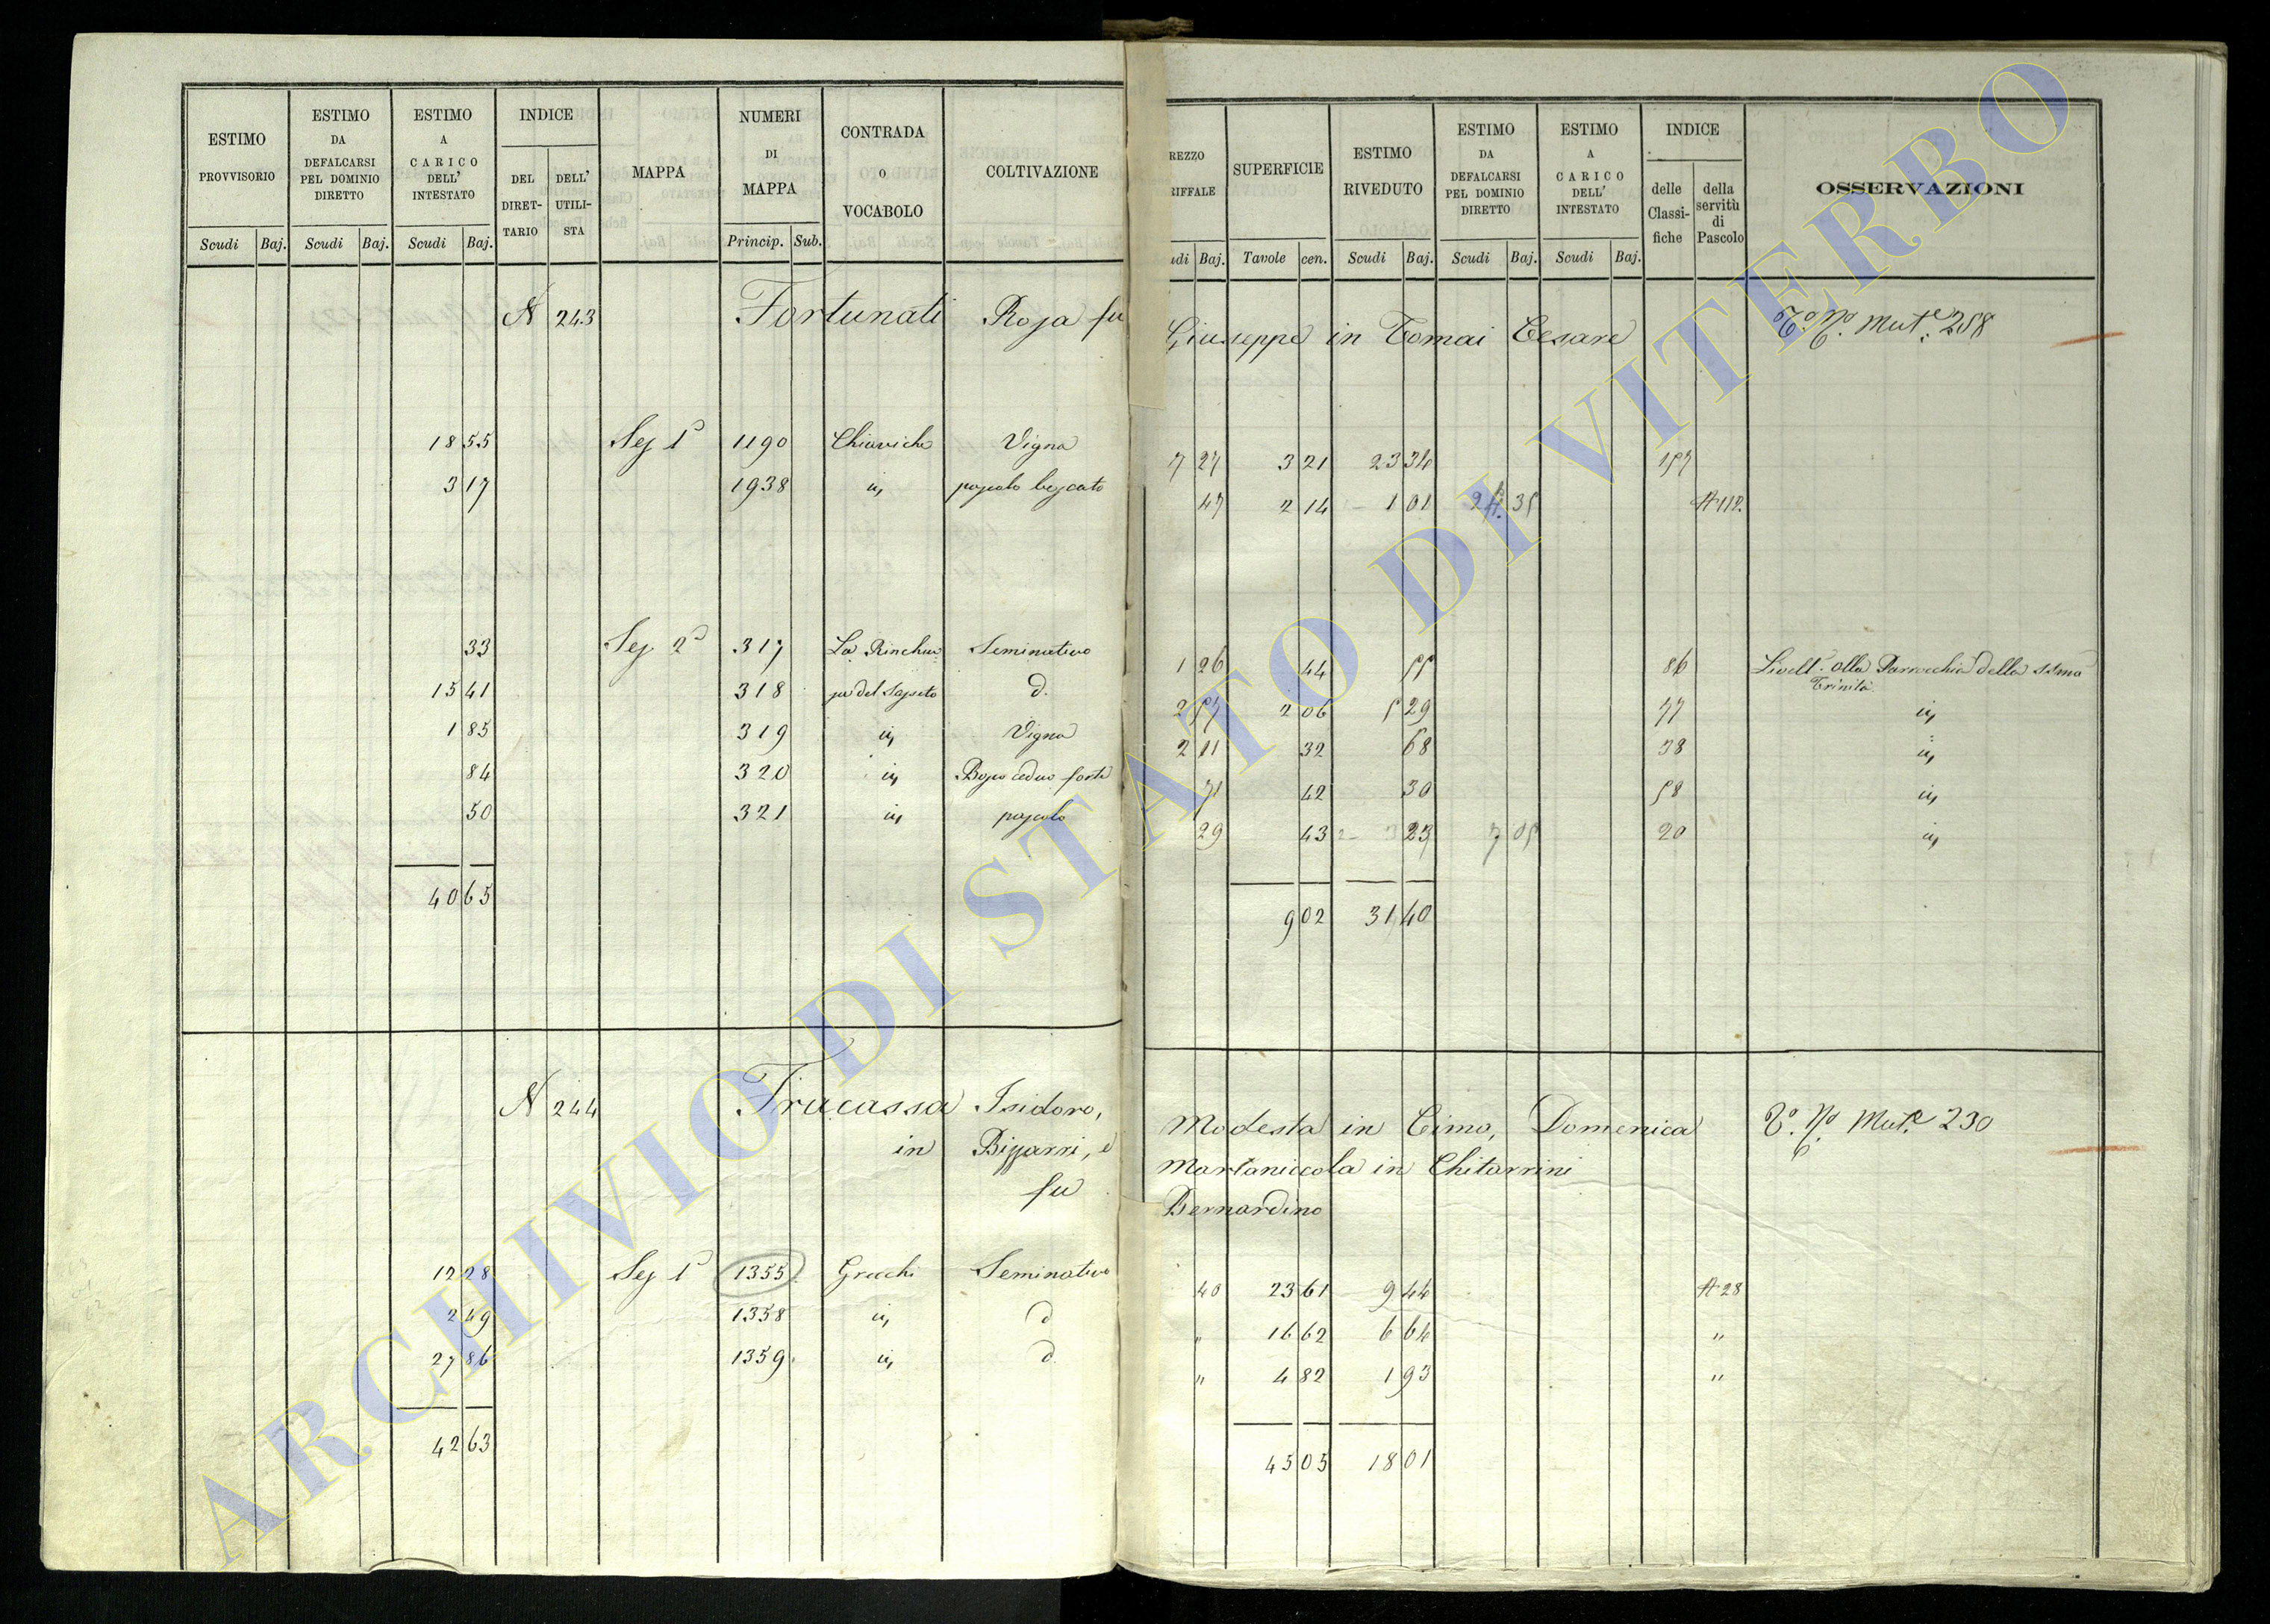 ESTIMO PROVVISORIO | ESTIMO DA DEFALCARSI PEL DOMINIO DIRETTO | ESTIMO A CARICO DELL' INTESTATO | INDICE DEL DIRETTARIO | DELL' UTILISTA | MAPPA | NUMERI DI MAPPA | CONTRADA O VOCABOLO | COLTIVAZIONE | REZZO RIFFALE | SUPERFICIE | ESTIMO RIVEDUTO | ESTIMO DA DEFALCARSI PEL DOMINIO DIRETTO | ESTIMO A CARICO DELL' INTESTATO | INDICE delle Classifiche | della servitù di Pascolo | OSSERVAZIONI
Scudi Baj. Scudi Baj. Scudi Baj. Princip. Sub. udi Baj. Tavole cen. Scudi Baj. Scudi Baj. Scudi Baj.
N 243 Fortunati Rosa fu Giuseppe in Tomai Cesare Mut.e 258
18 55 Sez 1a 1190 Chiaviche Vigna 7 27 3 21 23 34 157
3 17 1938 id pascolo boscato 47 2 14 1 01 24 35 A 112.
33 Sez 2a 317 La Rinchiu Seminativo 1 26 44 55 86 Livell. alla Parrocchia della SSma Trinità
15 41 318 d. 2 57 2 06 5 29 77 id
1 85 319 id Vigna 2 11 32 68 38 id
84 320 id Bosco ceduo forte 71 42 30 58 id
50 321 id pascolo 29 43 23 7 05 20 id
40 65 9 02 31 40
N 244 Fracassa Isidoro, Modesta in Cimo, Domenica Mut.e 230
in Bizzarri, e Martaniccola in Chitarrini
fu Bernardino
12 28 Sez 1a 1355 Grecchi Seminativo 40 23 61 9 44 A 28
2 49 1358 id d " 16 62 6 64 "
27 86 1359 id d. " 4 82 1 93 "
42 63 45 05 18 01
ARCHIVIO DI STATO DI VITERBO